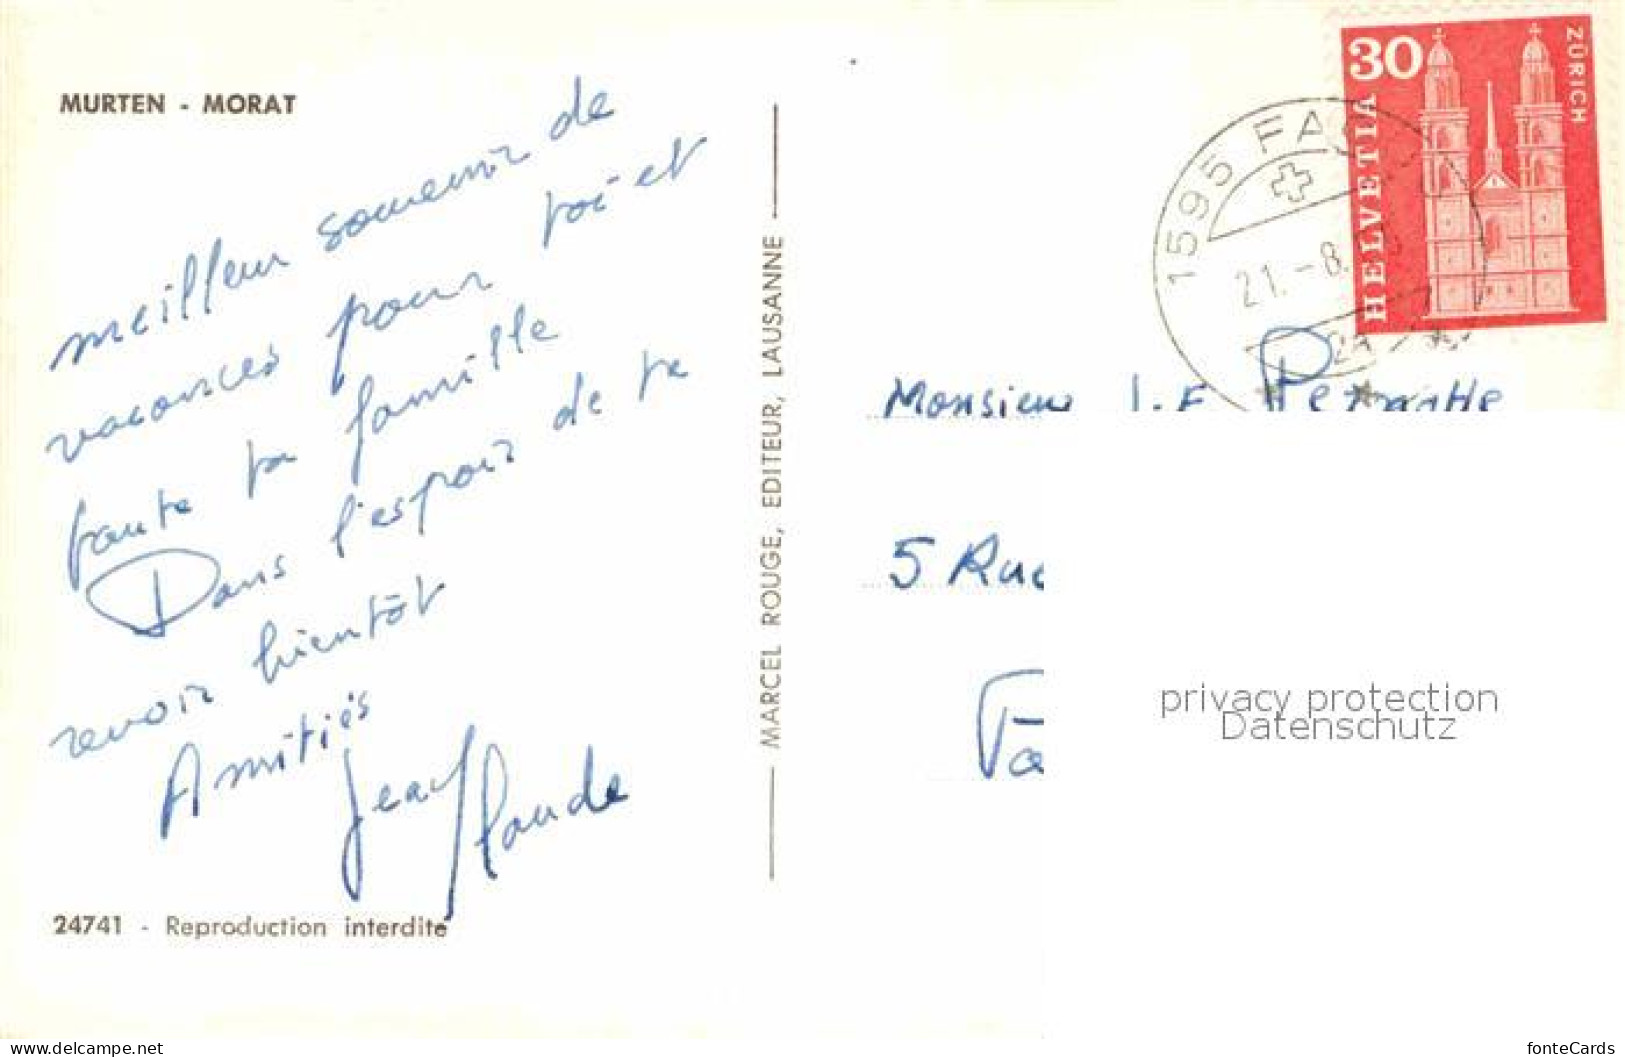 MURTEN - MORAT
meilleur souvenir de
vacances pour toi et
toute ta famille
Dans l'espoir de te
revoir bientôt
Amitiés
Jean Claude
24741 - Reproduction interdite
MARCEL ROUGE, EDITEUR, LAUSANNE
30
HELVETIA
ZÜRICH
1595 FA
21.-8.
Monsieur J-F
5 Rue
privacy protection
Datenschutz
www.delcampe.net
fonteCards